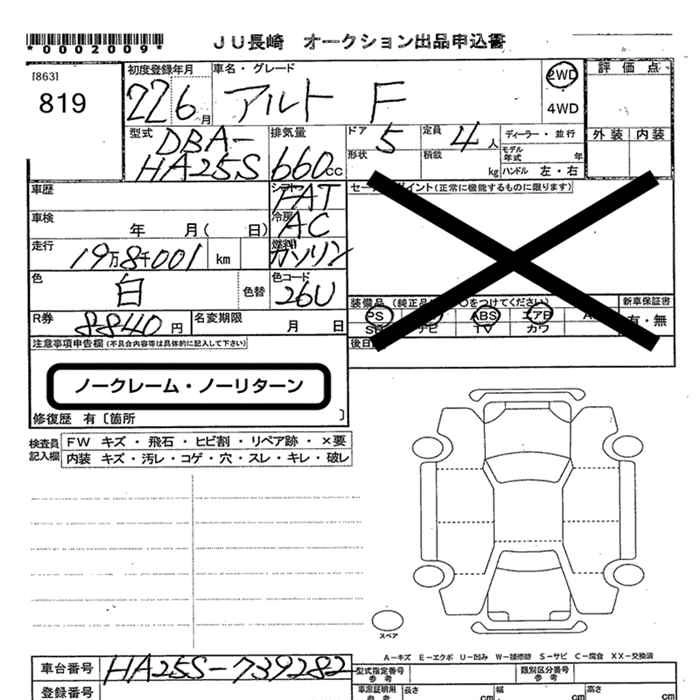 *0002009*
JU長崎 オークション出品申込書
[863]
819
初度登録年月
22 6月
車名・グレード
アルト F
2WD
4WD
評価点
型式
DBA-
HA25S
排気量
660cc
ドア 5
形状
定員 4人
積載 kg
ディーラー・並行
モデル年式 年
ハンドル 左・右
外装 内装
車歴
シフト
FAT
セールスポイント(正常に機能するものに限ります)
車検 年 月( 日)
冷房
AC
走行 19万8千001 km
燃料
ガソリン
色 白
色替
色コード
26U
装備品
をつけてください)
新車保証書
有・無
PS
ABS
エアB
ナビ
TV
カワ
R券 8840円
名変期限 月 日
後日
注意事項申告欄(不具合内容等は具体的に記入して下さい)
ノークレーム・ノーリターン
修復歴 有〔箇所 〕
検査員
記入欄
FW キズ・飛石・ヒビ割・リペア跡・×要
内装 キズ・汚レ・コゲ・穴・スレ・キレ・破レ
スペア
A-キズ E-エクボ U-凹み W-補修跡 S-サビ C-腐食 XX-交換済
車台番号 HA25S-739282
型式指定番号
参考
類別区分番号
参考
登録番号
車庫証明用
参考
長さ cm
幅 cm
高さ cm